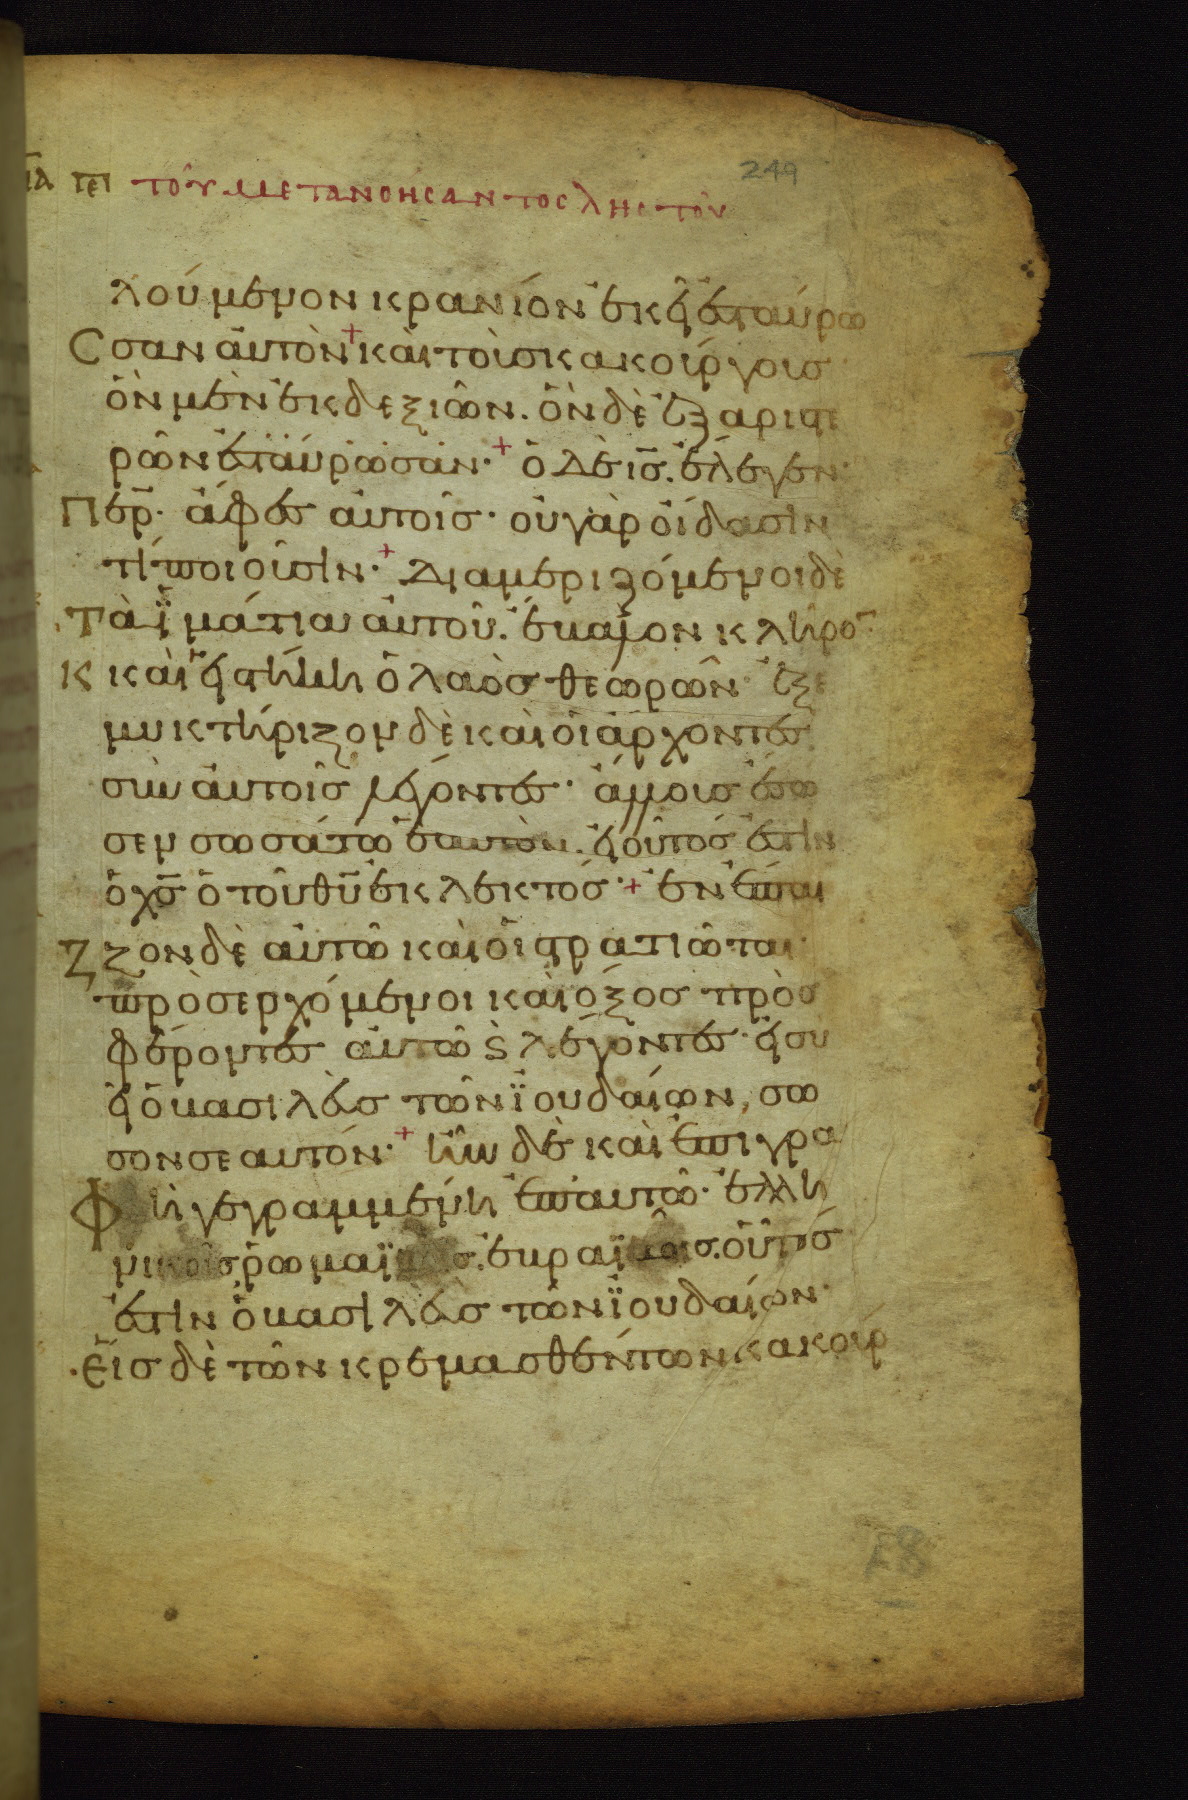 249
πα πε τοῦ μετανοησαντος ληστοῦ
λούμενον κρανίον ἐκεῖ ἐσταύρω
σαν αὐτὸν + καὶ τοὺς κακούργους
ὃν μὲν ἐκ δεξιῶν. ὃν δὲ ἐξ ἀριστε
ρῶν ἐσταύρωσαν. + ὁ δὲ ις. ἔλεγεν.
περ. ἄφες αὐτοῖς. οὐ γὰρ οἴδασιν
τί ποιοῦσιν. + Διαμεριζόμενοι δὲ
τὰ ϊμάτια αὐτοῦ. ἔβαλον κλῆρον.
κ καὶ εἱστήκει ὁ λαὸς θεωρῶν ἐξε
μυκτήριζον δὲ καὶ οἱ ἄρχοντες
σὺν αὐτοῖς λέγοντες. ἄλλους ἔσω
σεν σωσάτω ἑαυτὸν. εἰ οὗτός ἐστιν
ὁ χς ὁ τοῦ θυ ἐκλεκτός. + ἐνέπαι
ζον δὲ αὐτῶ καὶ οἱ στρατιῶται.
πρὸσερχόμενοι καὶ ὄξος πρὸσ
φέροντες αὐτῶ ϛ λέγοντες. εἰ συ
εἶ ὁ βασιλεὺς τῶν ϊουδαίων, σω
σον σεαυτόν. + ἦν δὲ καὶ ἐπιγρα
Φὴ γεγραμμένη ἐπ αὐτῶ. ἑλλη
νικοῖς ῥωμαϊκοῖς. ἑβραϊκοῖς. οὗτός
ἐστιν ὁ βασιλεὺς τῶν ϊουδαίων.
Εἷς δὲ τῶν κρεμασθέντων κακούρ